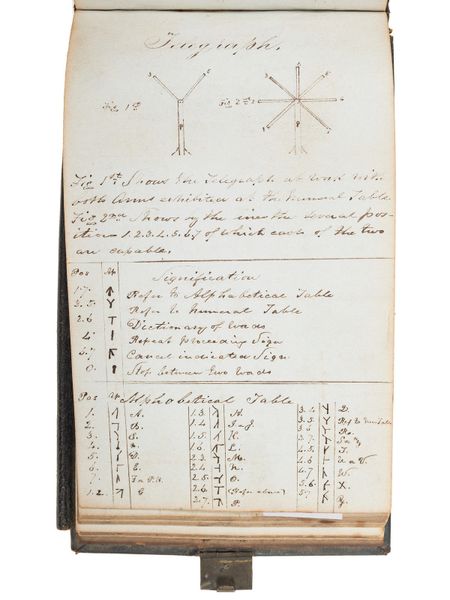 Telegraph.
Fig 1st
3 5
Fig 2nd
1 2 3 4 5 6 7
Fig 1st Shows the Telegraph at work with
both Arms exhibited at the Numeral Table
Fig 2nd Shows the several pos-
ition 1.2.3.4.5.6.7 of which each of the two
are capable.
Pos Signification
1.7. Refer to Alphabetical Table
3.5. Refer to Numeral Table
2.6 Dictionary of Words
4 Repeat preceding Sign
5.7. Cancel indicated Sign
0. Stop between Two Words
Pos Alphabetical Table
1. A. 1.3. H. 3.4. Q.
2. B. 1.4 I-J 3.5. Ref to Num Table
3. C. 1.5. K. 3.6 R.
4. D. 1.6 L. 3.7. S or Z
5. E. 2.3. M. 4.5. T.
6. 2.4 N. 4.6 U or V.
7. 2.5. O. 4.7 W.
1.2. G 2.6. 5.6. X.
2.7. P. 5.7 Y.